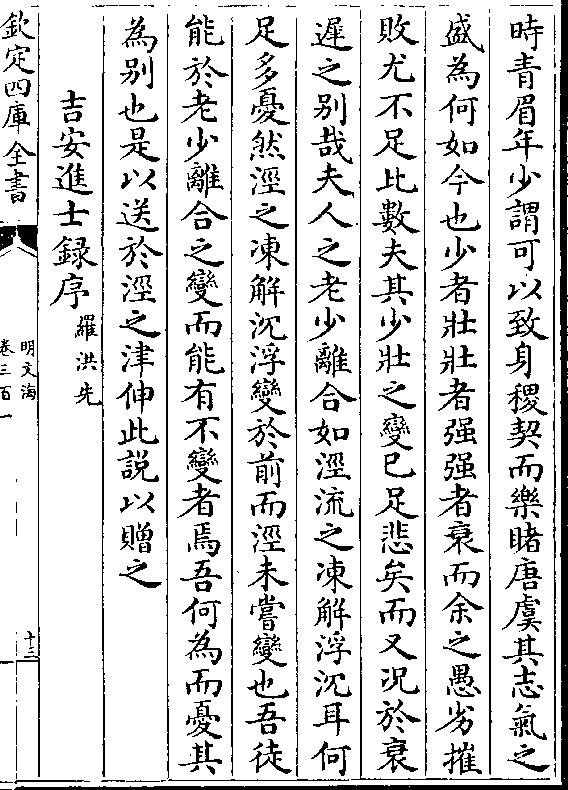 時青眉年少謂可以致身稷契而樂睹唐虞其志氣之
盛為何如今也少者壯壯者强强者衰而余之愚劣摧
敗尤不足比數夫其少壯之變已足悲矣而又况於衰
遲之别哉夫人之老少離合如涇流之凍解浮沉耳何
足多憂然涇之凍解沉浮變於前而涇未嘗變也吾徒
能於老少離合之變而能有不變者焉吾何為而憂其
為别也是以送於涇之津伸此說以贈之
吉安進士録序 羅洪先
欽定四庫全書
明文海
卷三百一
十三